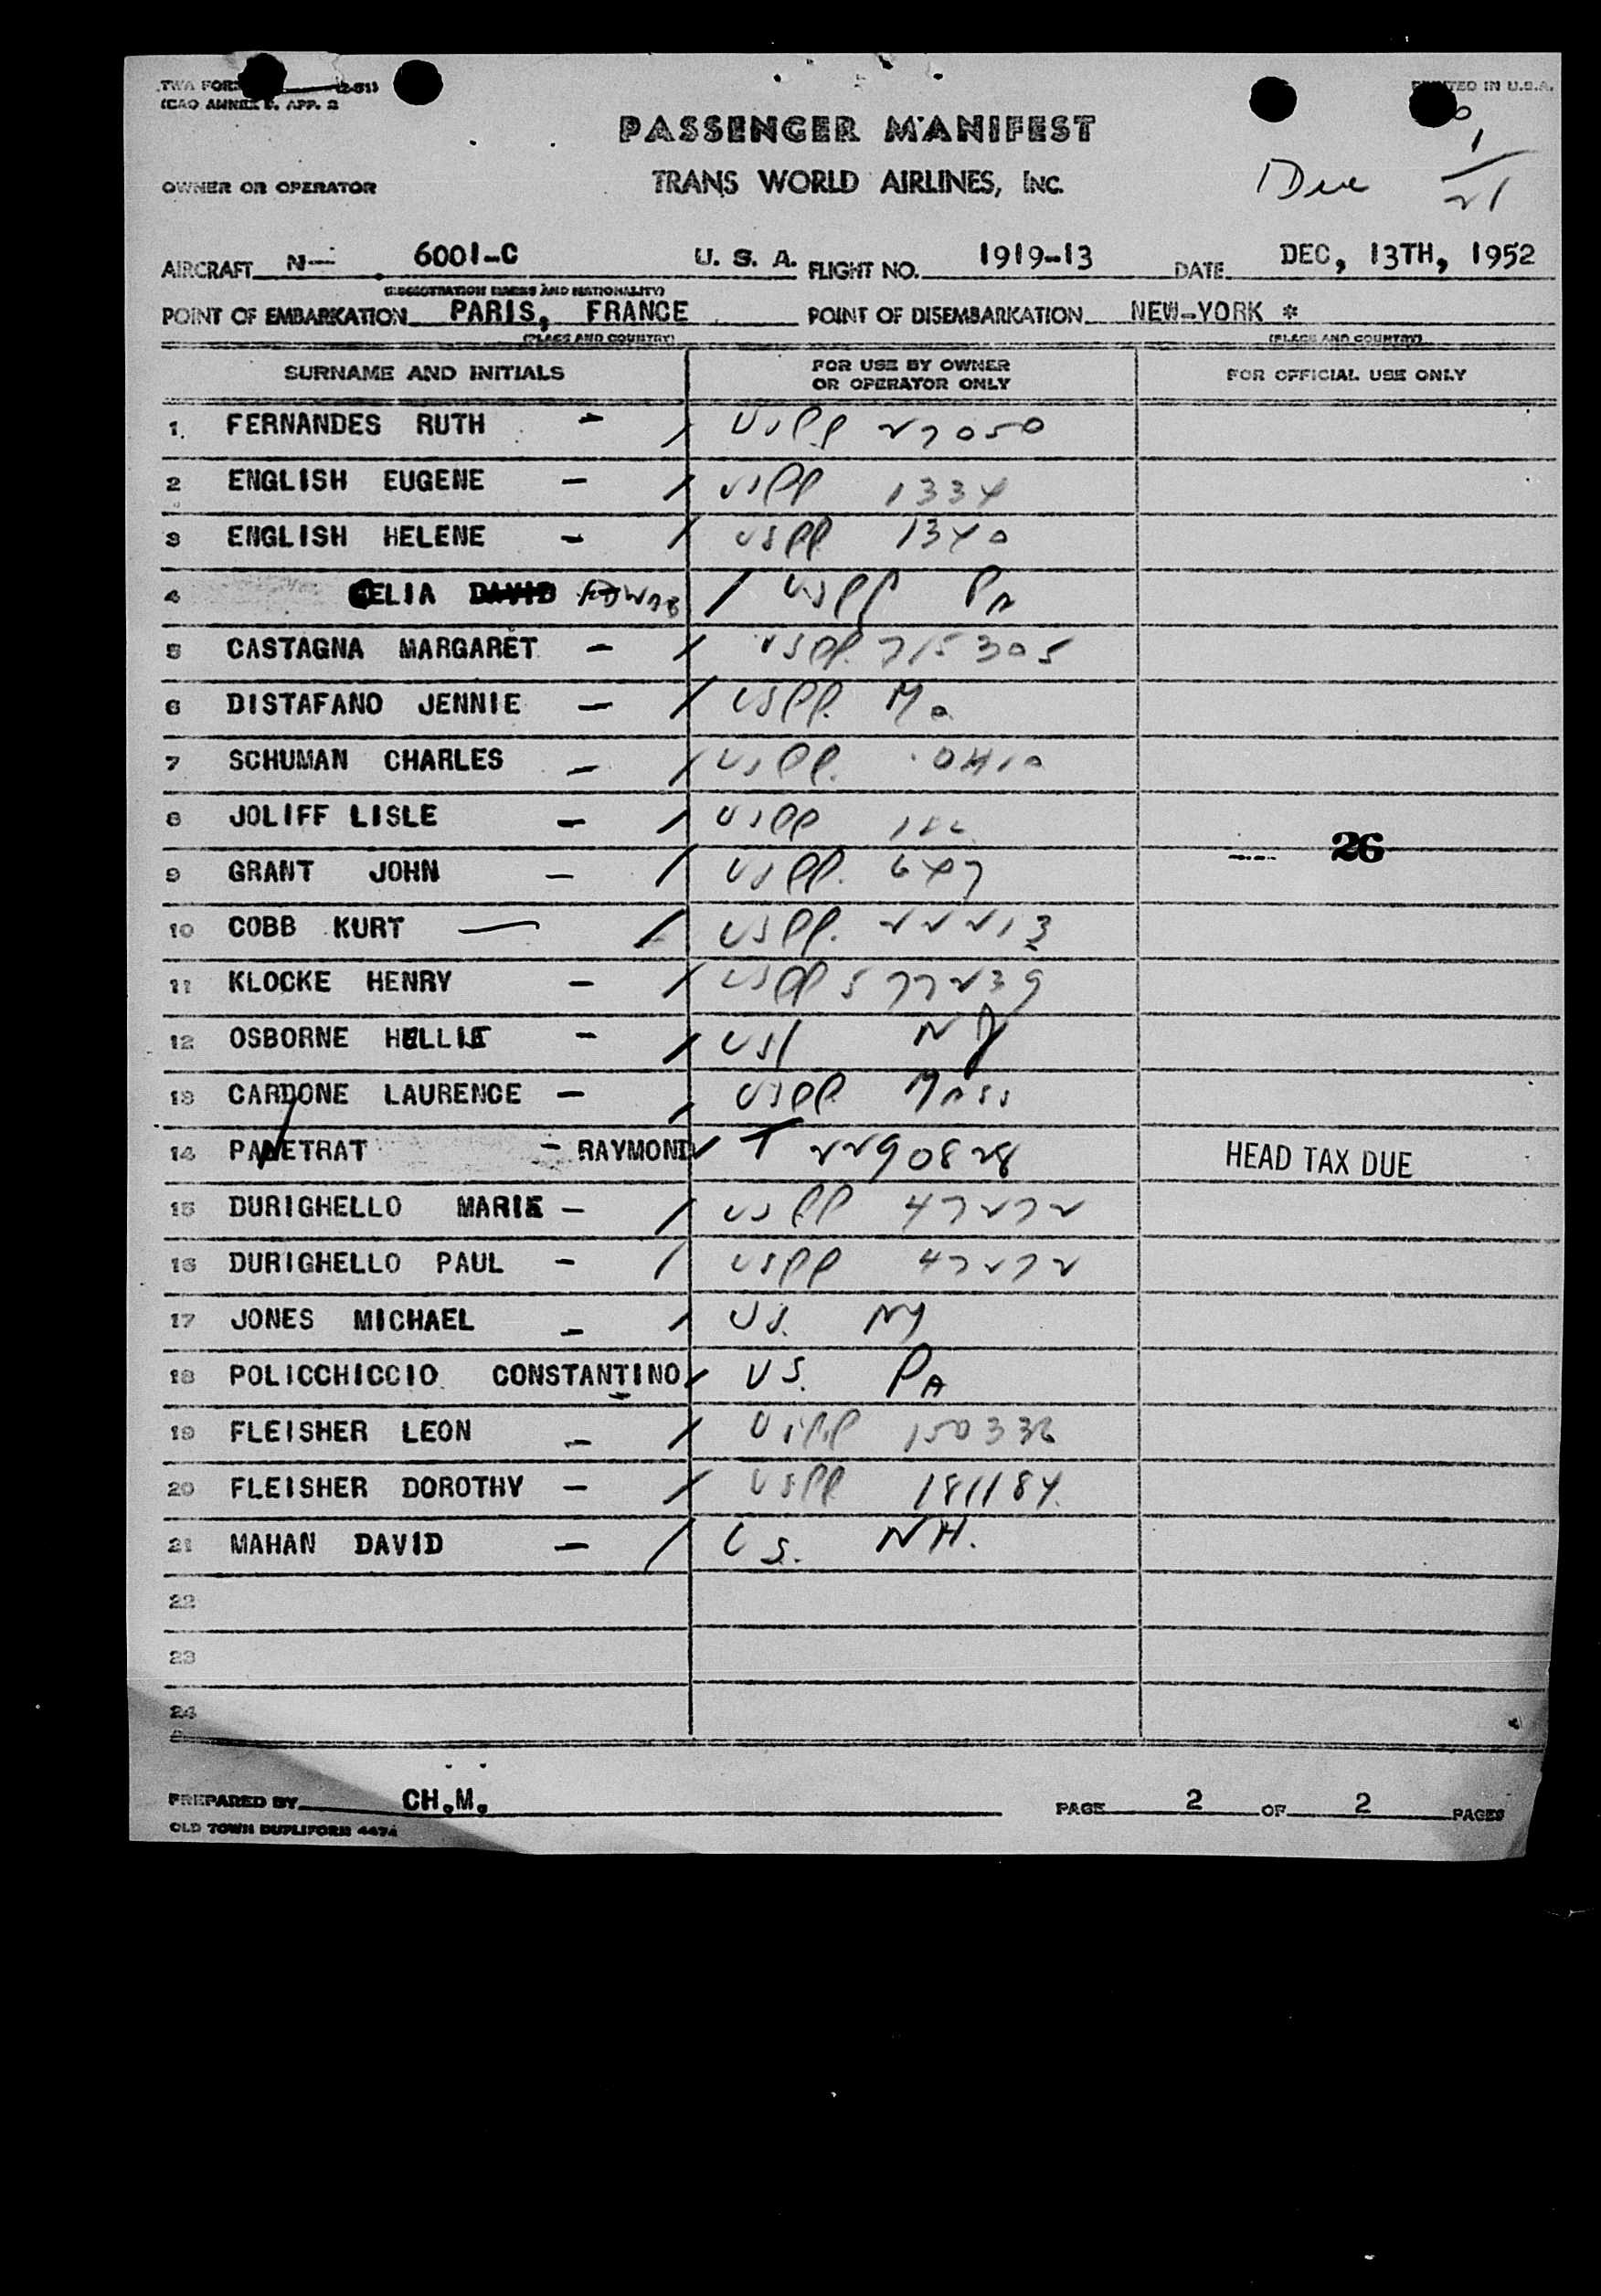 TWA FORM (2-51)
ICAO ANNEX 9, APP. 2
PRINTED IN U.S.A.
PASSENGER MANIFEST
OWNER OR OPERATOR TRANS WORLD AIRLINES, INC. Due 1/21
AIRCRAFT N- 6001-C U. S. A. FLIGHT NO. 1919-13 DATE DEC, 13TH, 1952
(REGISTRATION MARKS AND NATIONALITY)
POINT OF EMBARKATION PARIS, FRANCE POINT OF DISEMBARKATION NEW-YORK *
(PLACE AND COUNTRY) (PLACE AND COUNTRY)
SURNAME AND INITIALS FOR USE BY OWNER OR OPERATOR ONLY FOR OFFICIAL USE ONLY
1. FERNANDES RUTH - / USPP 27050
2 ENGLISH EUGENE - / USPP 1334
3 ENGLISH HELENE - / USPP 1340
4 CELIA DAVID / USPP PA
5 CASTAGNA MARGARET - / USPP. 715305
6 DISTAFANO JENNIE - / USPP. Mo
7 SCHUMAN CHARLES - / USPP. OHIO
8 JOLIFF LISLE - / USPP
26
9 GRANT JOHN - / USPP. 647
10 COBB KURT - / USPP. 22213
11 KLOCKE HENRY - / USPP 577239
12 OSBORNE - / US NY
13 CARDONE LAURENCE - / USPP. MASS
14 PANETRAT - RAYMOND T 2290828 HEAD TAX DUE
15 DURIGHELLO MARIE - / USPP 47272
16 DURIGHELLO PAUL - / USPP 47272
17 JONES MICHAEL - / US. NY
18 POLICCHICCIO CONSTANTINO / US. PA
19 FLEISHER LEON - / USPP 150336
20 FLEISHER DOROTHY - / USPP 181184.
21 MAHAN DAVID - / US. NH.
22
23
24
PREPARED BY CH.M. PAGE 2 OF 2 PAGES
OLD TOWN DUPLIFORM 4474